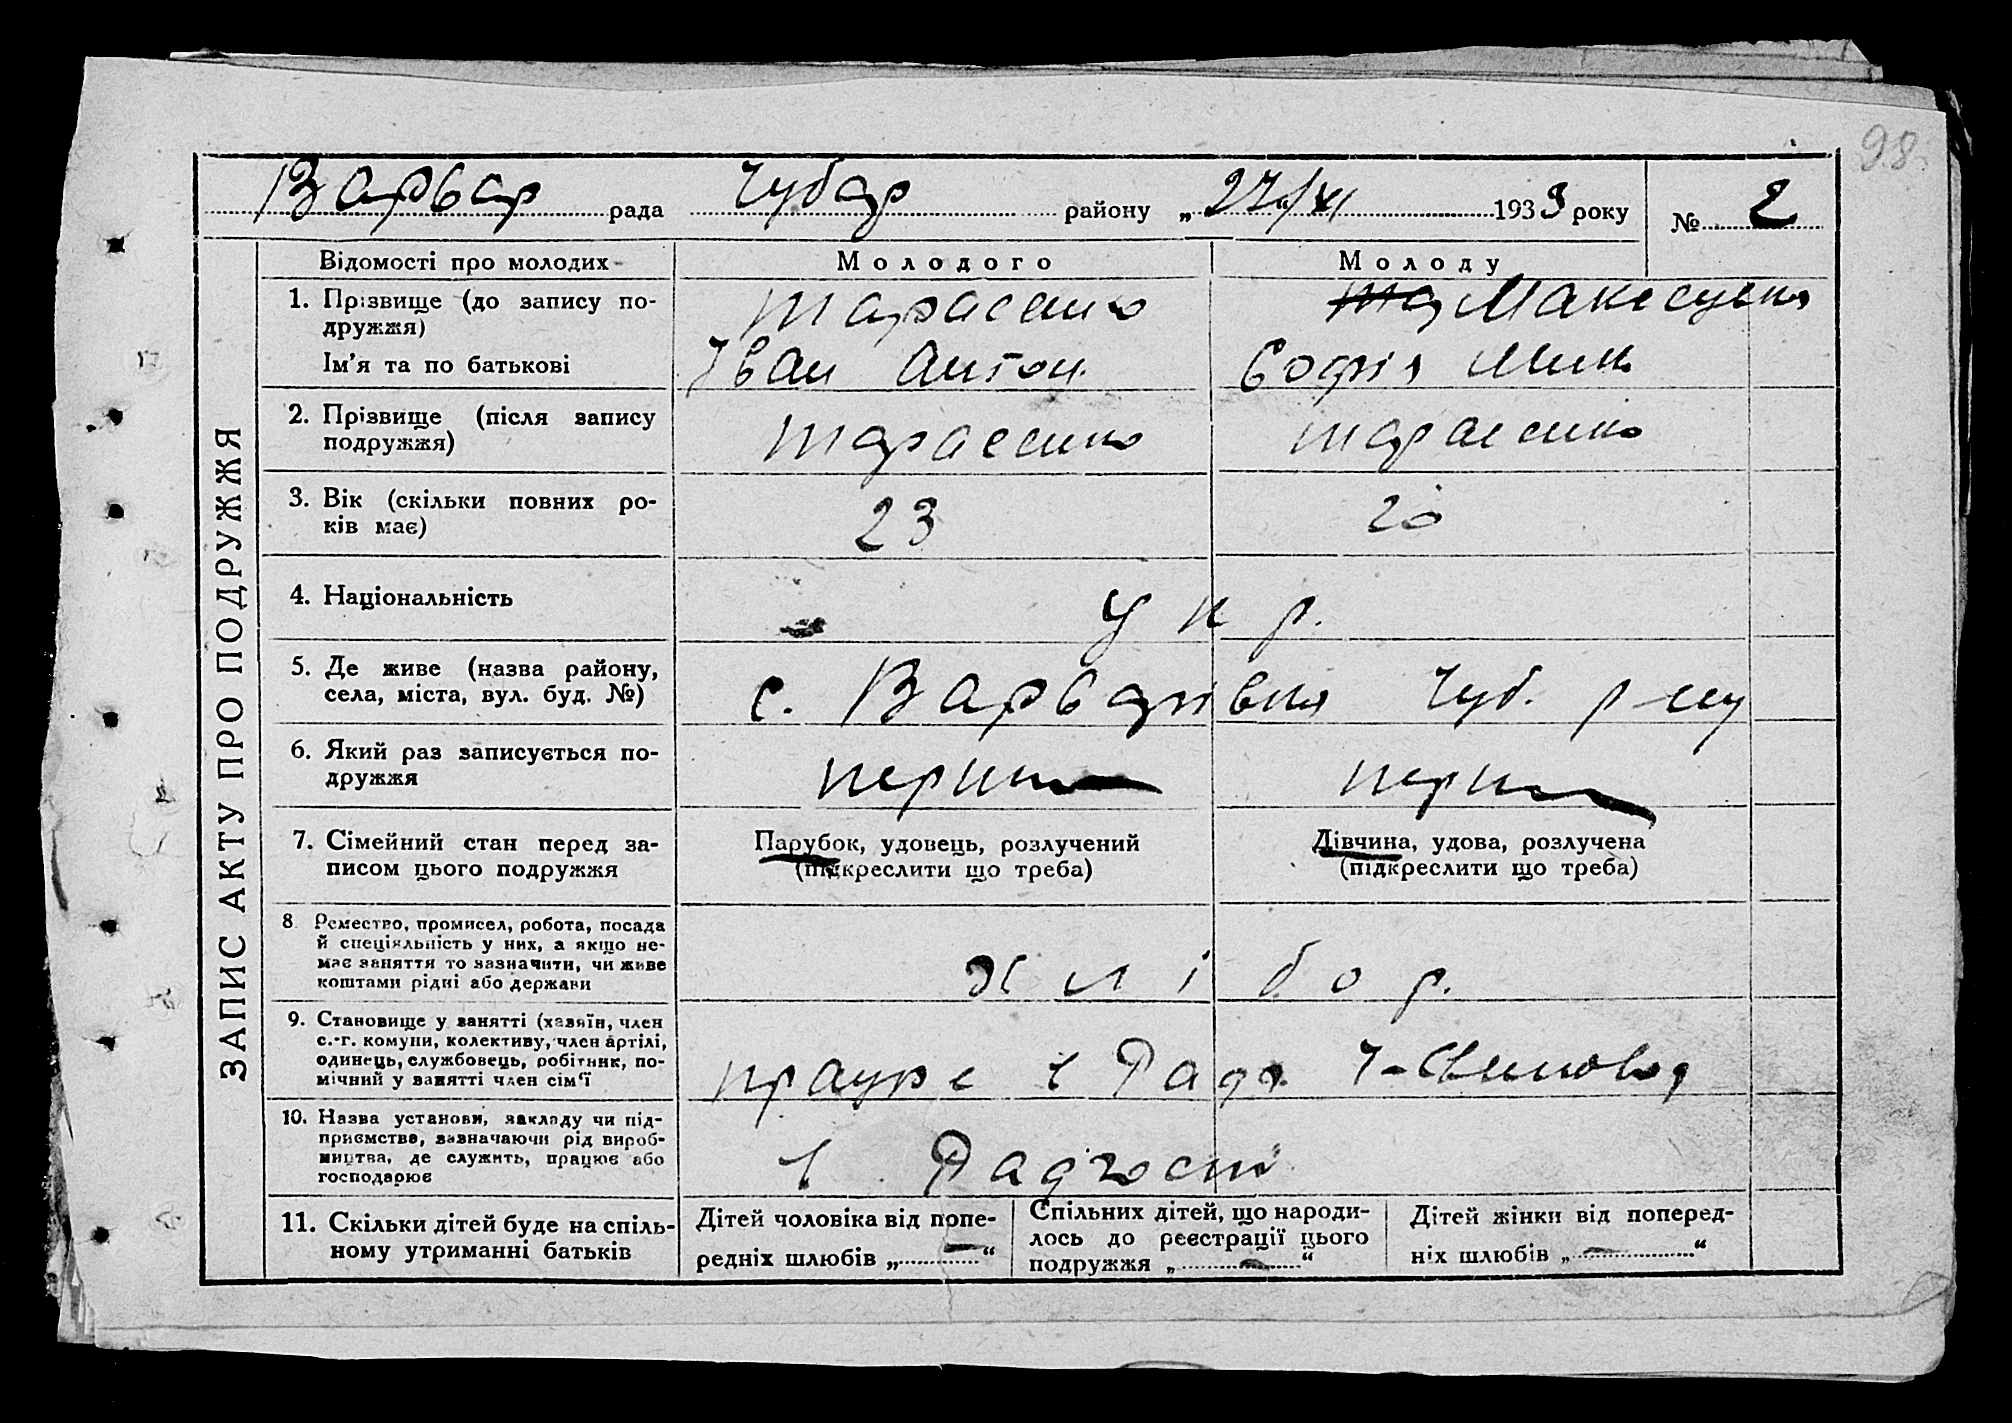 98.
Варвар рада Чубар району „27/XI 1933 року № 2
ЗАПИС АКТУ ПРО ПОДРУЖЖЯ
Відомості про молодих
Молодого
Молоду
1. Прізвище (до запису по-
дружжя)
Тарасенко
Ім'я та по батькові
Іван Антон.
Софія
2. Прізвище (після запису
подружжя)
Тарасенко
Тарасенко
3. Вік (скільки повних ро-
ків має)
23
20
4. Національність
укр.
5. Де живе (назва району,
села, міста, вул. буд. №)
с. Варварівка Чуб. р-ну
6. Який раз записується по-
дружжя
перши
перши
7. Сімейний стан перед за-
писом цього подружжя
Парубок, удовець, розлучений
(підкреслити що треба)
Дівчина, удова, розлучена
(підкреслити що треба)
8. Ремество, промисел, робота, посада
й спеціяльність у них, а якщо не-
має заняття то зазначити, чи живе
коштами рідні або держави
хлібор.
9. Становище у занятті (хазяїн, член
с.-г. комуни, колективу, член артілі,
одинець, службовець, робітник, по-
мічний у занятті член сім'ї
працює в Радг.
10. Назва установи, закладу чи під-
приємства, зазначаючи рід вироб-
ництва, де служить, працює або
господарює
в Радгоспі
11. Скільки дітей буде на спіль-
ному утриманні батьків
Дітей чоловіка від попе-
редніх шлюбів „—“
Спільних дітей, що народи-
лось до реєстрації цього
подружжя „—“
Дітей жінки від поперед-
ніх шлюбів „—“